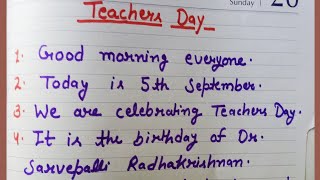 Sunday 20
Teachers Day
1. Good morning everyone.
2. Today is 5th September.
3. We are celebrating Teachers Day.
4. It is the birthday of Dr.
Sarvepalli Radhakrishnan.